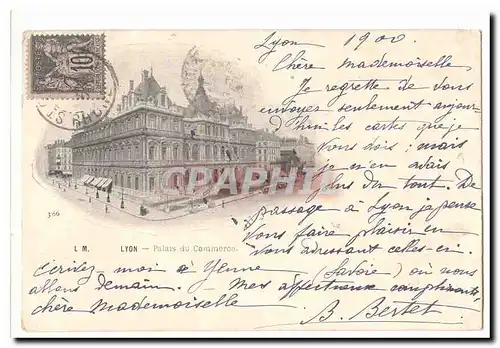 Lyon 1900
Chère Mademoiselle
Je regrette de vous
envoyer seulement aujour
d'hui les cartes que je
vous dois ; mais
je n'en avais
plus du tout. De
passage à Lyon je pense
vous faire plaisir en
vous adressant celles-ci.
Écrivez moi à Yenne (Savoie) où nous
allons demain. Mes affectueux compliments,
chère Mademoiselle
B. Bertet
10
CPARAMA
366
L M. LYON — Palais du Commerce.